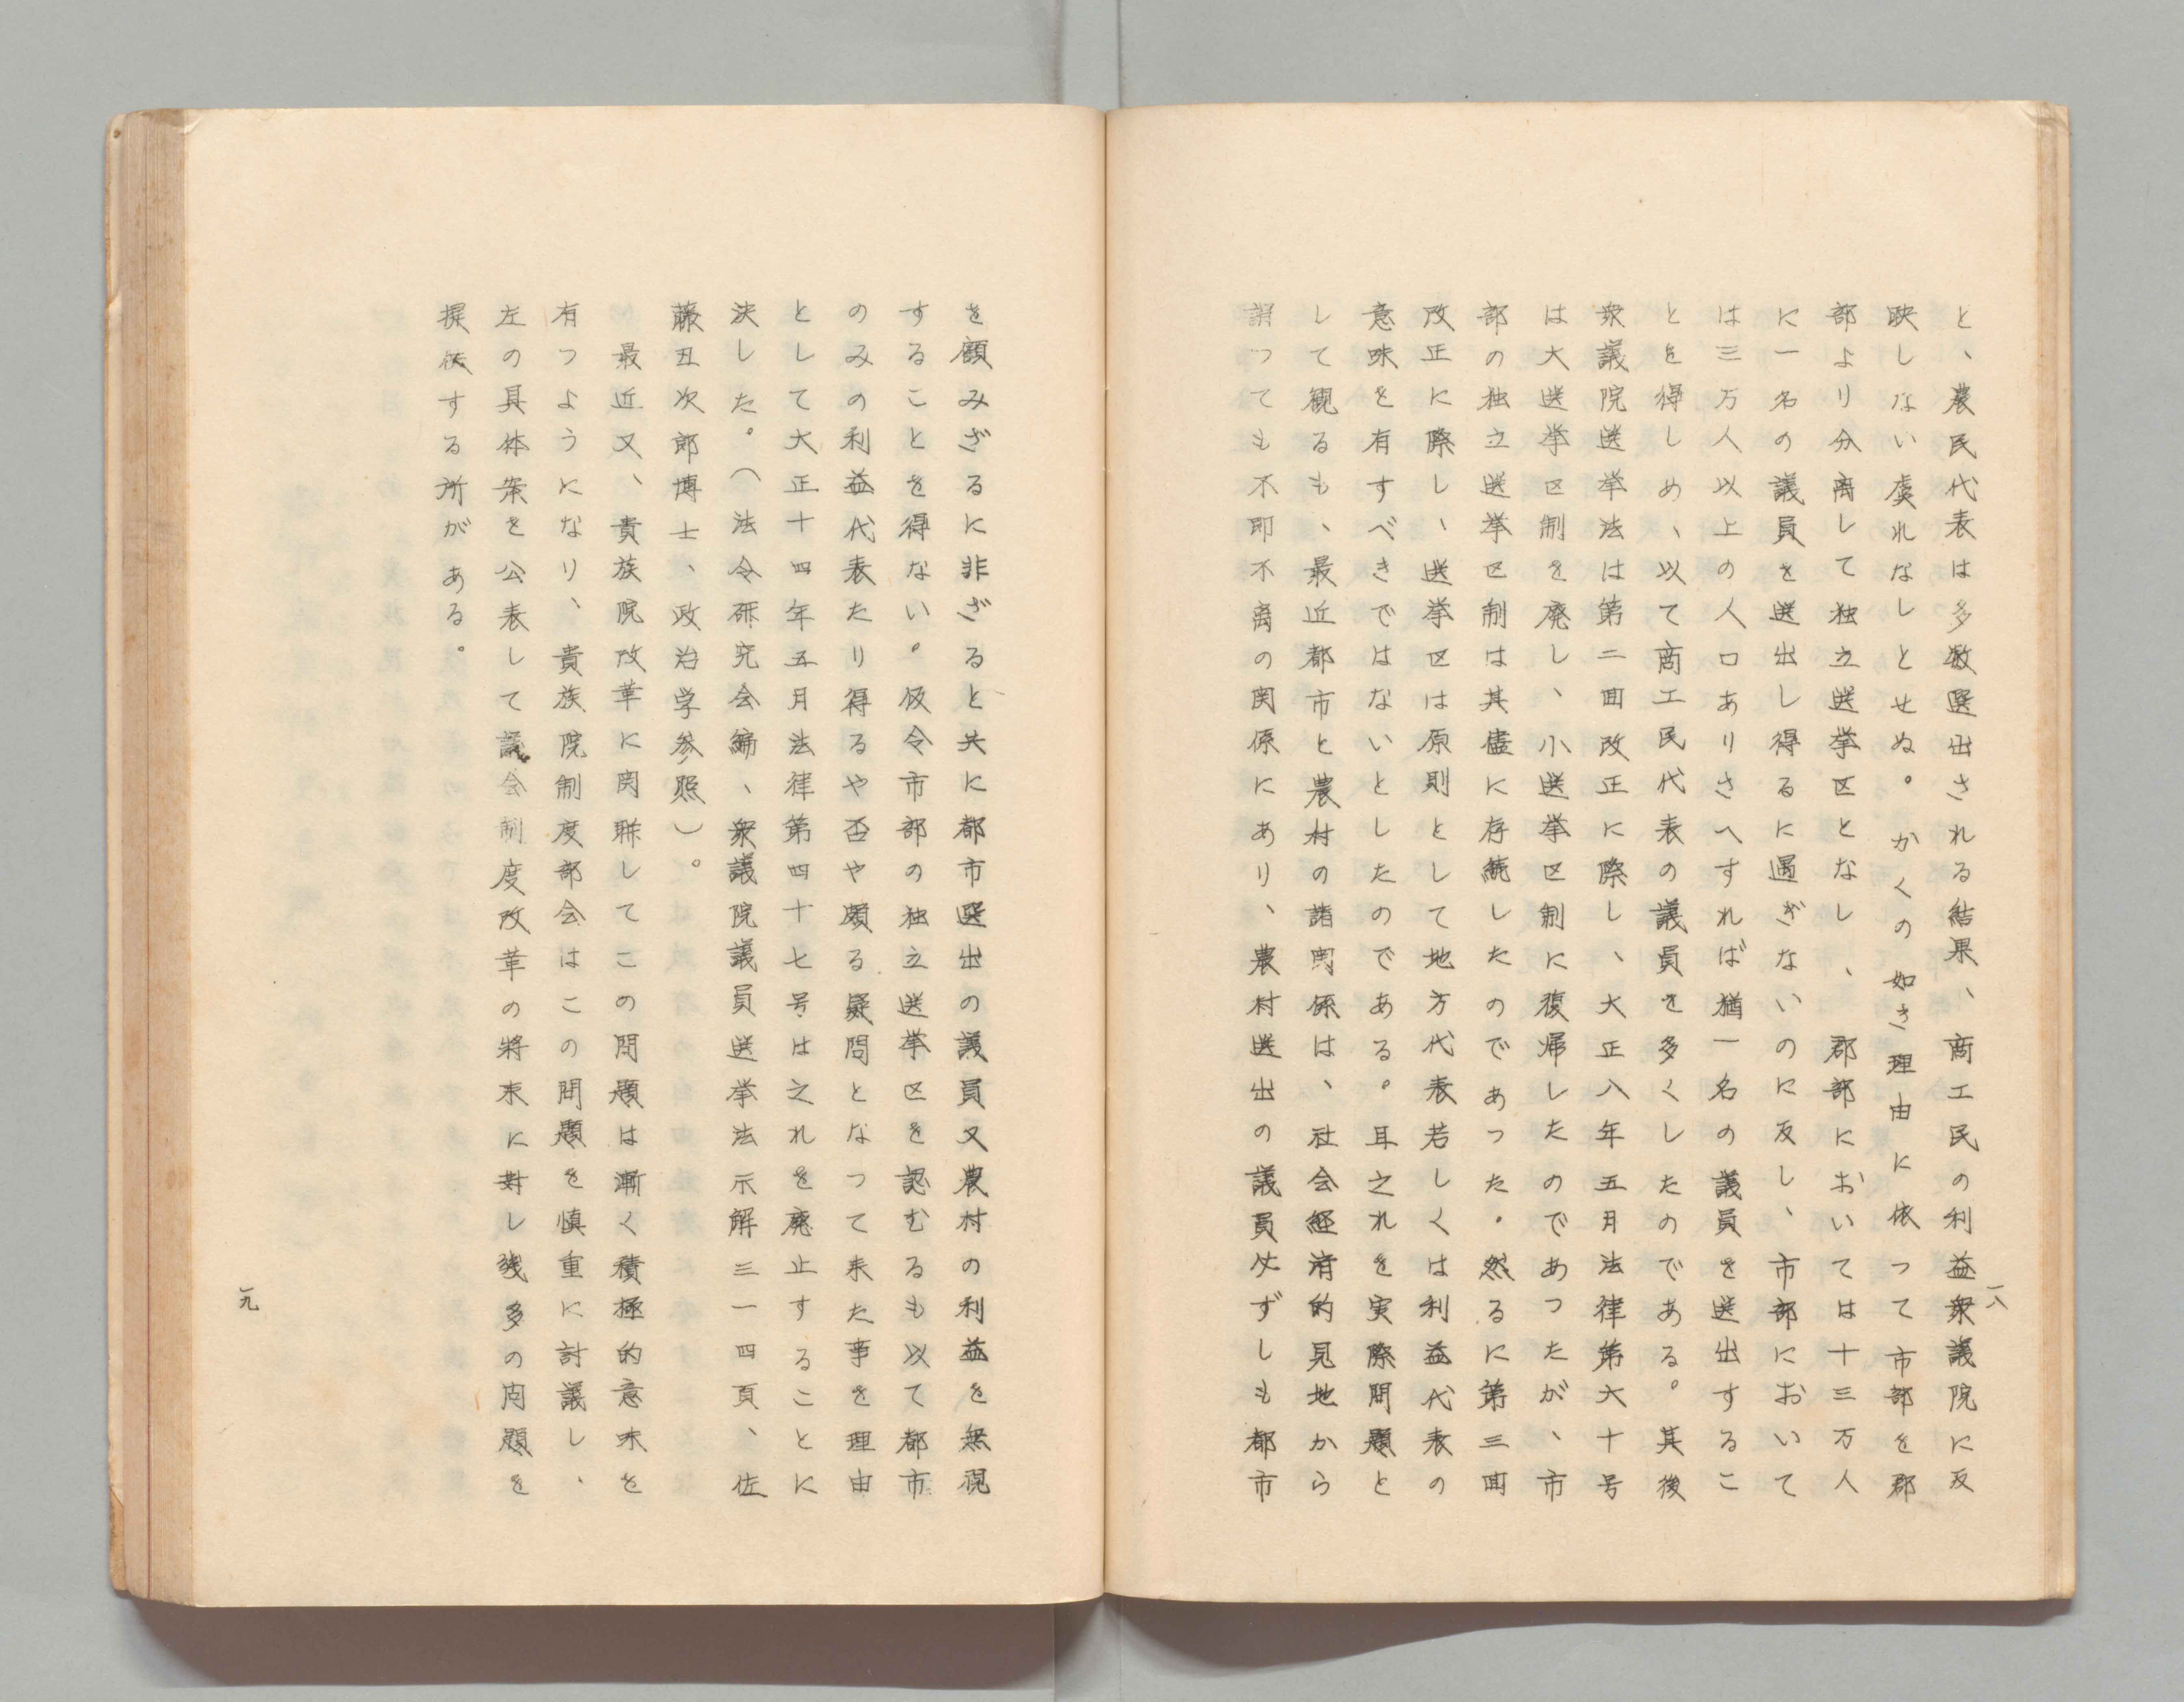 と、農民代表は多数選出される結果、商工民の利益衆議院に反
映しない虞れなしとせぬ。かくの如き理由に依って市部を郡
部より分離して独立選挙区となし、郡部においては十三万人
に一名の議員を選出し得るに過ぎないのに反し、市部において
は三万人以上の人口ありさへすれば猶一名の議員を選出するこ
とを得しめ、以て商工民代表の議員を多くしたのである。其後
衆議院選挙法は第二回改正に際し、大正八年五月法律第六十号
は大選挙区制を廃し、小選挙区制に復帰したのであつたが、市
部の独立選挙区制は其儘に存続したのであった。然るに第三回
改正に際し、選挙区は原則として地方代表若しくは利益代表の
意味を有すべきではないとしたのである。耳之れを実際問題と
して観るも、最近都市と農村の諸関係は、社会経済的見地から
謂つても不即不離の関係にあり、農村選出の議員必ずしも都市
一八
を顧みざるに非ざると共に都市選出の議員又農村の利益を無視
することを得ない。仮令市部の独立選挙区を認むるも以て都市
のみの利益代表たり得るや否や頗る疑問となつて来た事を理由
として大正十四年五月法律第四十七号は之れを廃止することに
決した。（法令研究会編、衆議院議員選挙法示解三一四頁、佐
藤丑次郎博士、政治学参照）。
最近又、貴族院改革に関聯してこの問題は漸く積極的意味を
有つようになり、貴族院制度部会はこの問題を慎重に討議し、
左の具体案を公表して議会制度改革の将来に対し幾多の問題を
提供する所がある。
一九